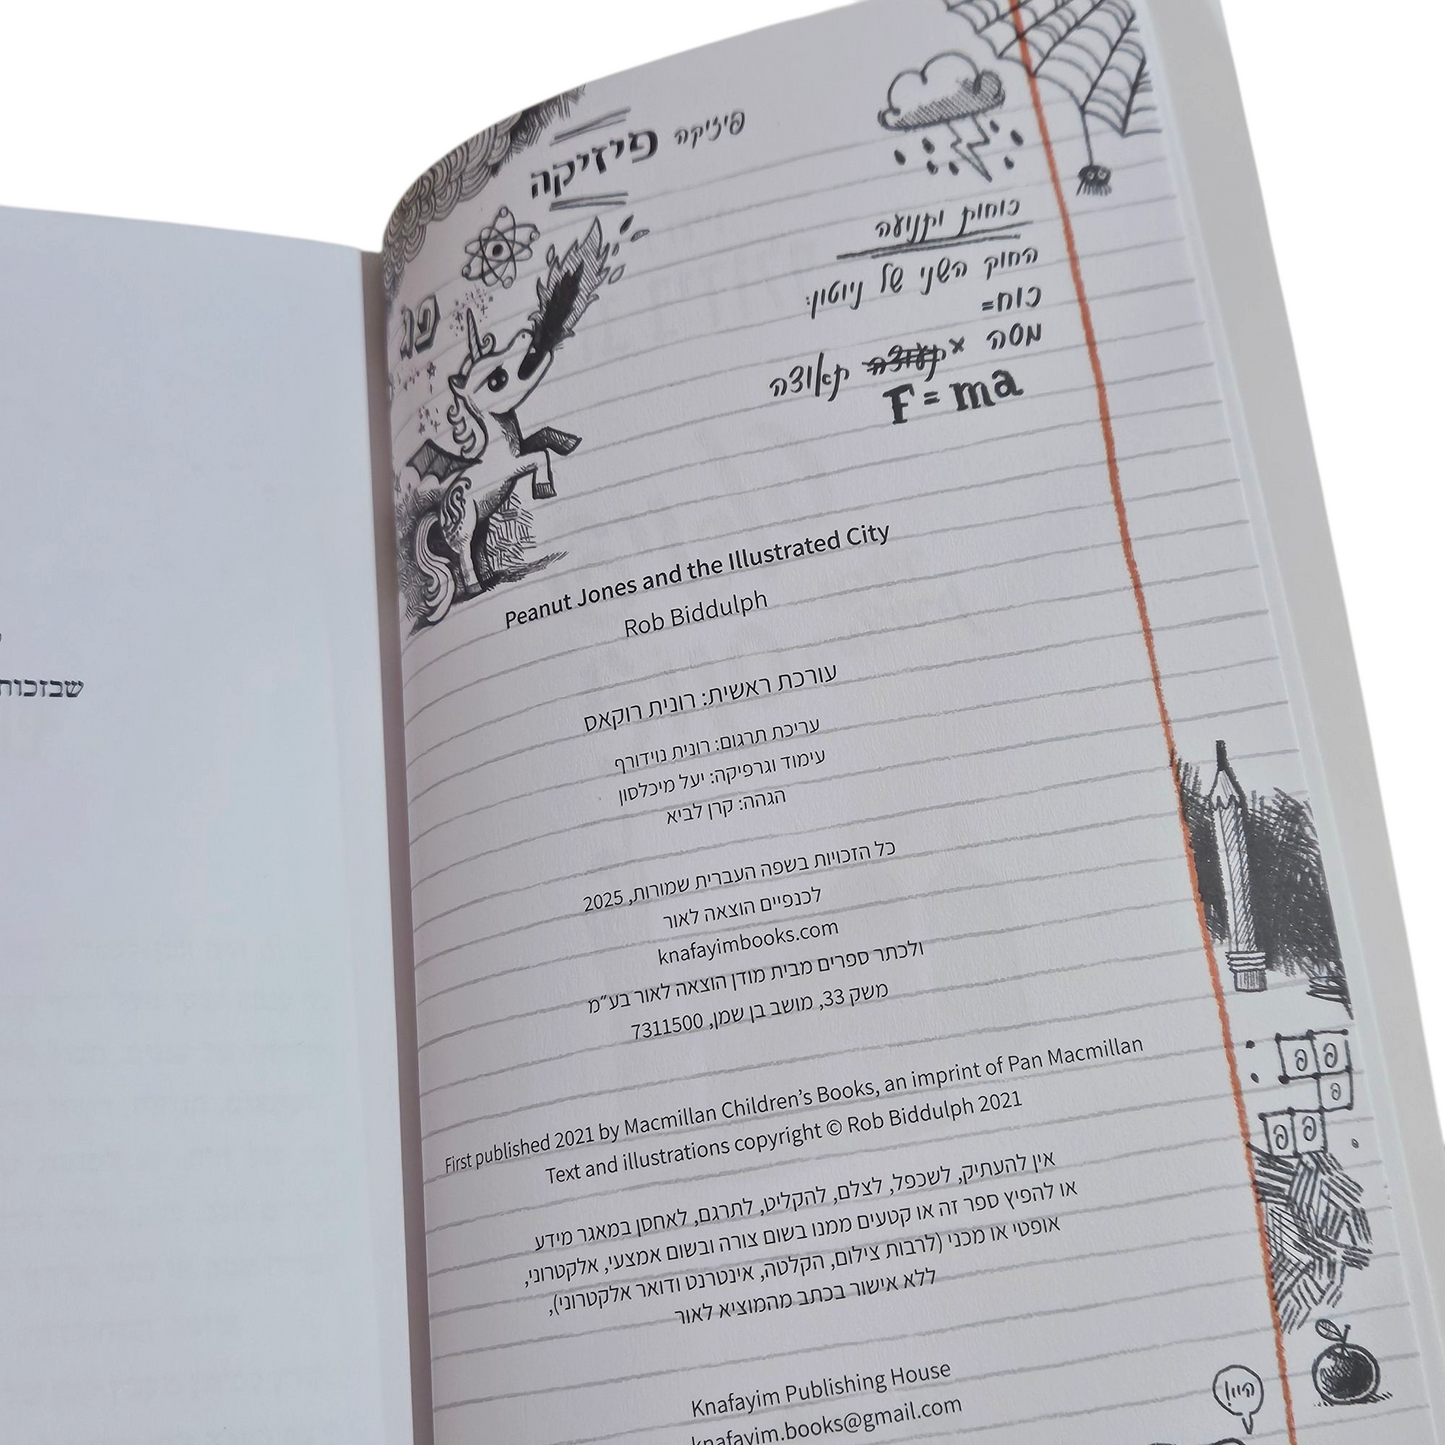 פיזיקה
פיזיקה
כוחות ותנועה
החוק השני של ניוטון:
כוח=
מסה × תאוצה
F = ma
פג
Peanut Jones and the Illustrated City
Rob Biddulph
עורכת ראשית: רונית רוקאס
עריכת תרגום: רונית נוידורף
עימוד וגרפיקה: יעל מיכלסון
הגהה: קרן לביא
כל הזכויות בשפה העברית שמורות, 2025
לכנפיים הוצאה לאור
knafayimbooks.com
ולכתר ספרים מבית מודן הוצאה לאור בע״מ
משק 33, מושב בן שמן, 7311500
First published 2021 by Macmillan Children’s Books, an imprint of Pan Macmillan
Text and illustrations copyright © Rob Biddulph 2021
אין להעתיק, לשכפל, לצלם, להקליט, לתרגם, לאחסן במאגר מידע
או להפיץ ספר זה או קטעים ממנו בשום צורה ובשום אמצעי, אלקטרוני,
אופטי או מכני (לרבות צילום, הקלטה, אינטרנט ודואר אלקטרוני),
ללא אישור בכתב מהמוציא לאור
Knafayim Publishing House
knafayim.books@gmail.com
היי!
פ פ
פ
פ פ
שבזכות